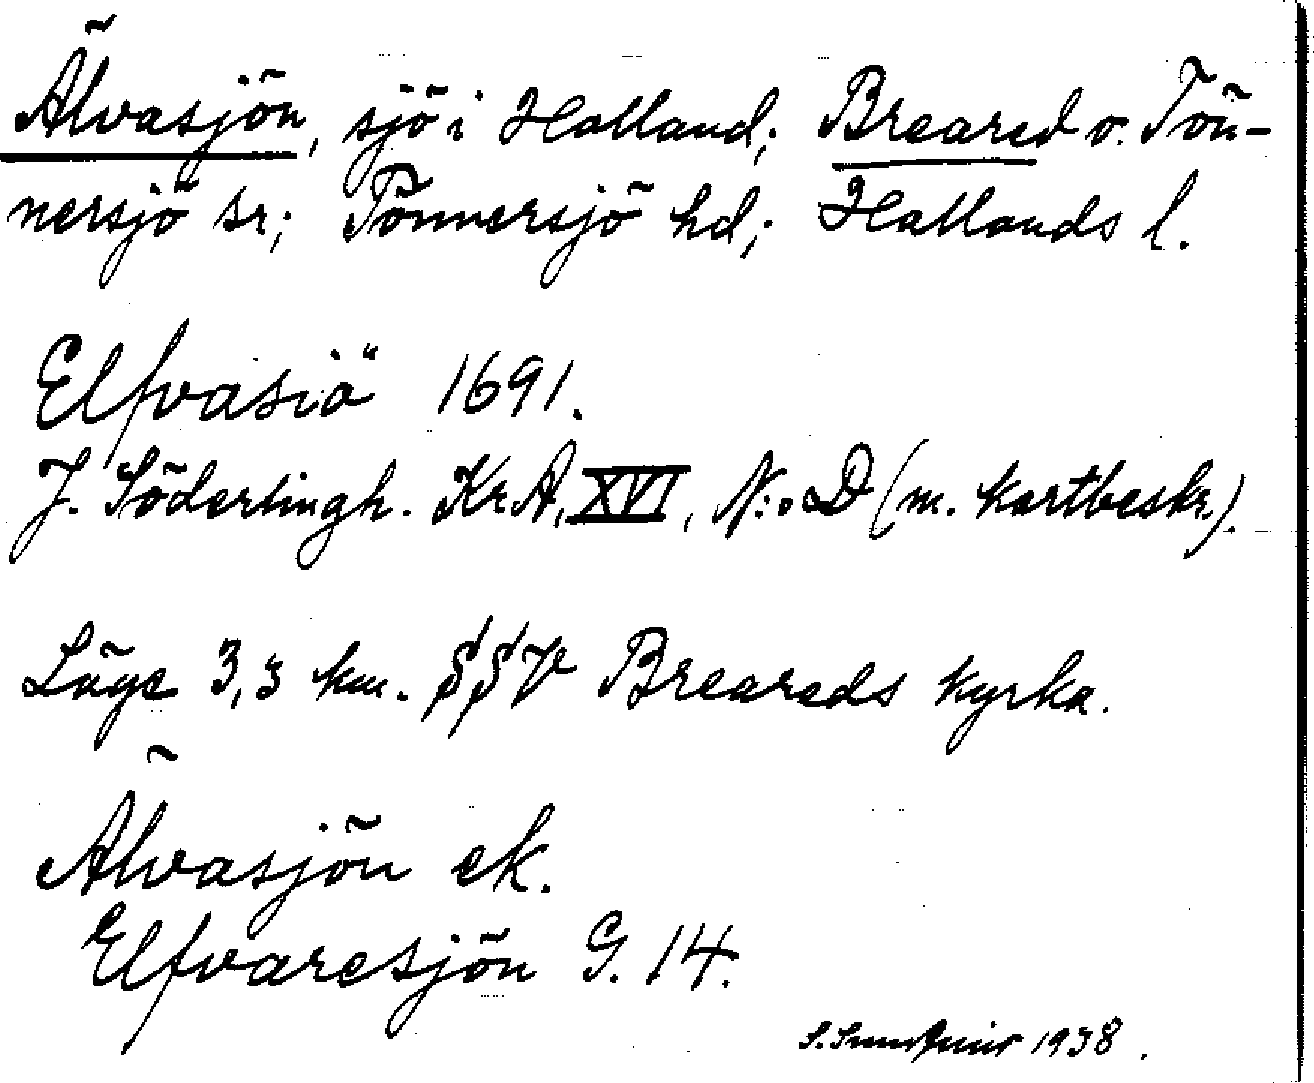 Älvasjön, sjö i Halland; Breared o. Tön-
nersjö sr; Tönnersjö hd; Hallands l.
Elfvasiö 1691.
J. Söderlingh. Kr.A. XVI, N:o D (m. kartbeskr.).
Läge 3,3 km. SSV Breareds kyrka.
Älvasjön ek.
Elfvaresjön G. 14.
1938.